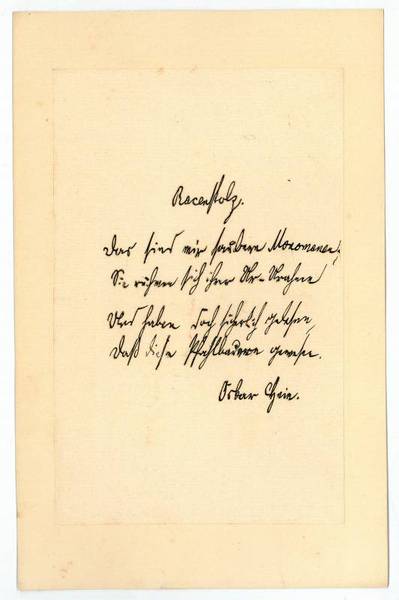 Racenstolz.
Das sind mir saubere Monomanen,
Sie rühmen sich ihrer Ur-Urahnen
Und haben doch sicherlich gelesen,
Daß diese Pfahlbauern gewesen.
Oskar